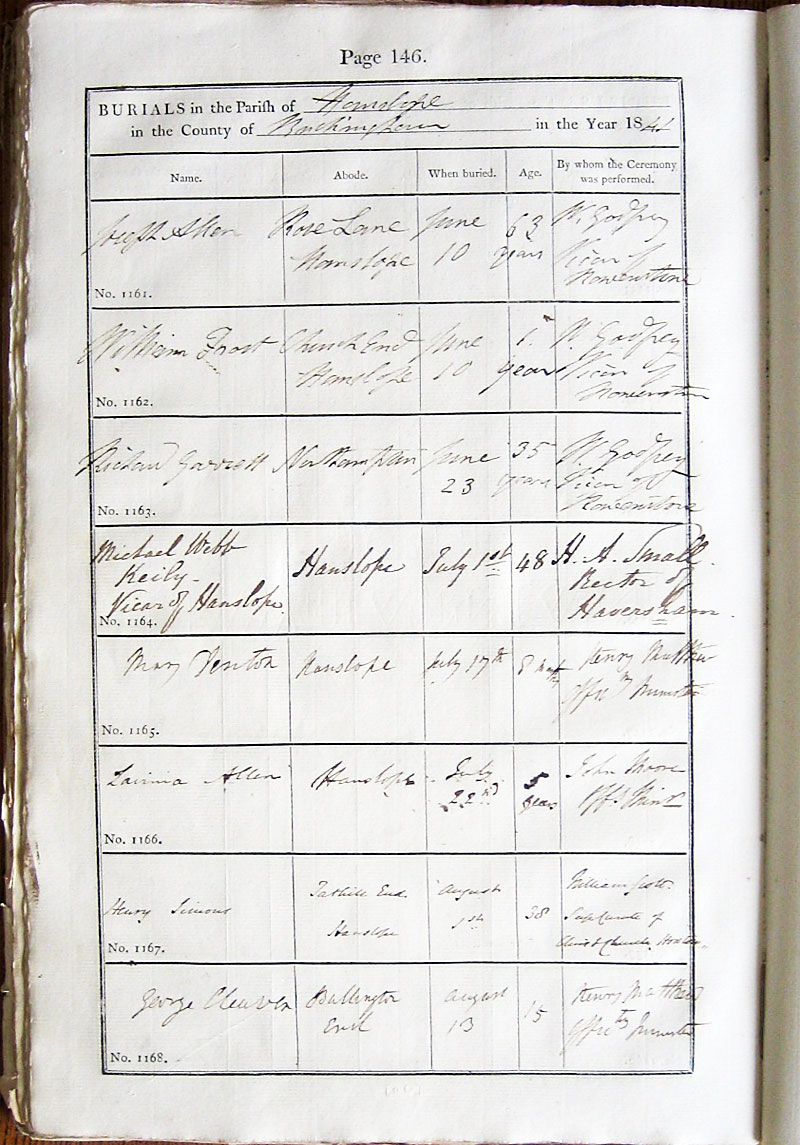 Page 146.
BURIALS in the Parish of Hanslope
in the County of Buckingham in the Year 1841
Name. Abode. When buried. Age. By whom the Ceremony was performed.
Joseph Allen Rose Lane June 63 W. Godfrey
Hanslope 10 years Vicar of
Ravenstone
No. 1161.
William Frost Church End June 1 W. Godfrey
Hanslope 10 year Vicar of
Ravenstone
No. 1162.
Richard Garrett Northampton June 35 W. Godfrey
23 years Vicar of
Ravenstone
No. 1163.
Michael Webb Hanslope July 1st 48 H. A. Small
Keily Rector of
Vicar of Hanslope Haversham
No. 1164.
Mary Hanslope July 17th 8 Henry
Minister
No. 1165.
Lavinia Allen Hanslope July 5 John Moore
22nd years Offg Minr
No. 1166.
Henry Simons Tathill End August 38 William Scott
Hanslope 1st of
Christ Church, Hoxton
No. 1167.
George Cleaver Bullington August 15 Henry
End 13 Minister
No. 1168.